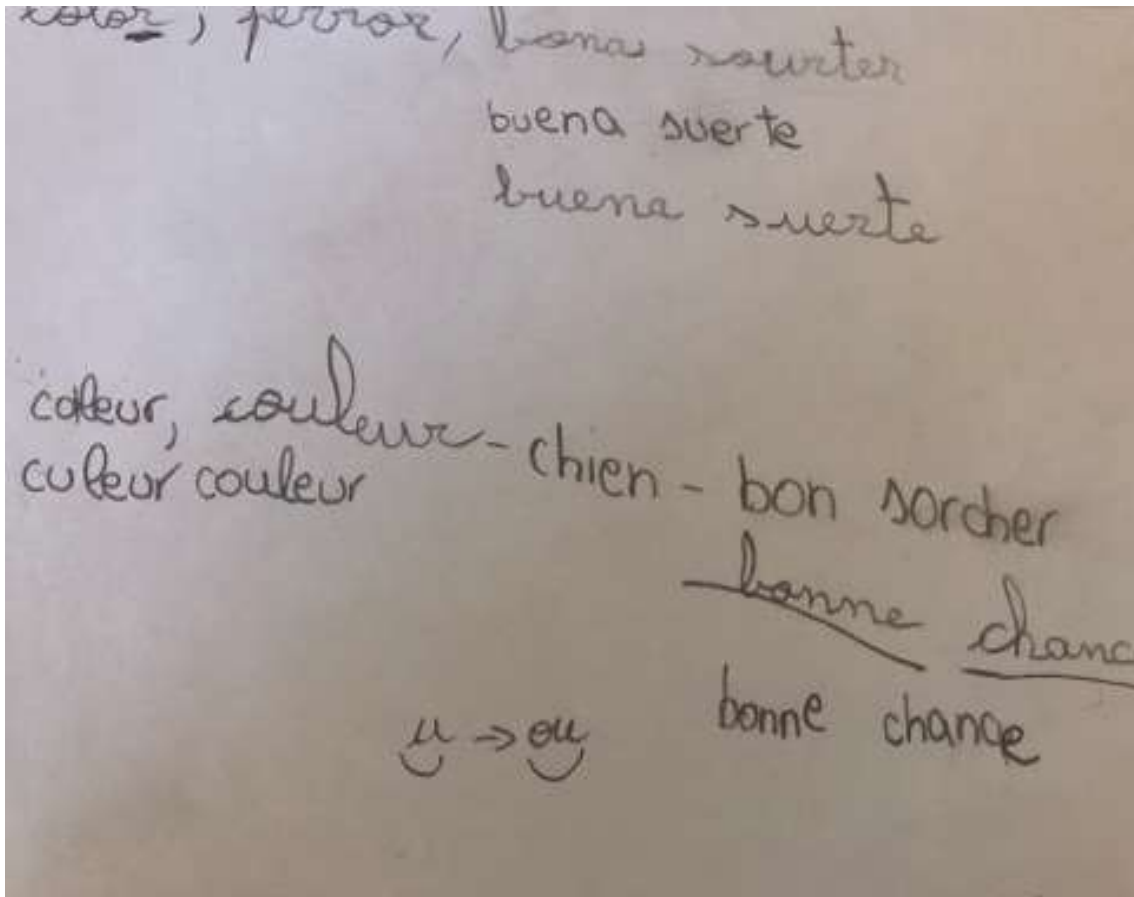 color, perror, bona sourter
buena suerte
buena suerte
coleur, couleur - chien - bon sorcher
culeur couleur
bonne chanc
bonne chance
u → ou